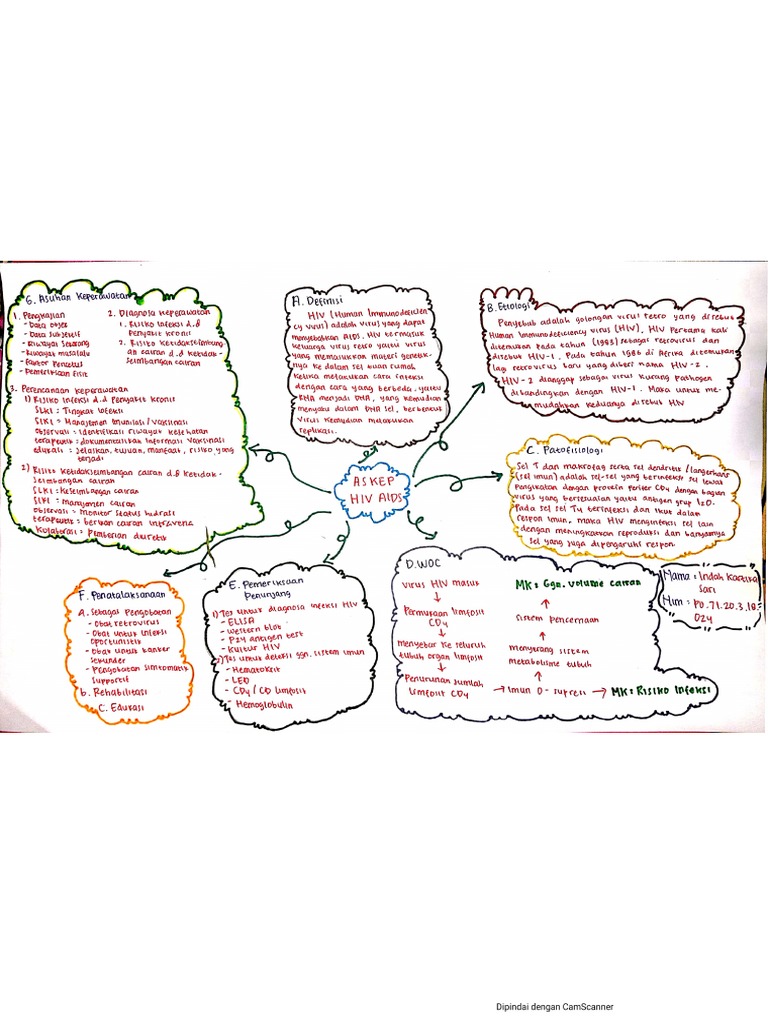 ASKEP
HIV AIDS
A. Definisi
HIV (Human Immunodeficien
cy virus) adalah virus yang dapat
menyebabkan AIDS. HIV termasuk
keluarga virus retro yaitu virus
yang memasukan materi genetik-
nya ke dalam sel tuan rumah
ketika melakukan cara infeksi
dengan cara yang berbeda, yaitu
RNA menjadi DNA, yang kemudian
menyatu dalam DNA sel, berbentuk
virus kemudian melakukan
replikasi.
B. Etiologi
Penyebab adalah golongan virus retro yang disebut
Human Immunodeficiency virus (HIV). HIV pertama kali
ditemukan pada tahun (1983) sebagai retrovirus dan
disebut HIV-1. Pada tahun 1986 di Afrika ditemukan
lag retrovirus baru yang diberi nama HIV-2.
HIV-2 dianggap sebagai virus kurang pathogen
dibandingkan dengan HIV-1. Maka untuk me-
mudahkan keduanya disebut HIV
C. Patofisiologi
Sel T dan makrofag serta sel dendritik (langerhans
(sel imun) adalah sel-sel yang terinfeksi sel lewat
Pengikatan dengan protein perifer CD4 dengan bagian
virus yang bersesuaian yaitu antigen grup 120.
Pada sel sel T4 terinfeksi dan ikut dalam
respon imun, maka HIV menginfeksi sel lain
dengan meningkatkan reproduksi dan banyaknya
sel yang juga dipengaruhi respon.
D. WOC
Virus HIV masuk
Permukaan limfosit
CD4
menyebar ke seluruh
tubuh organ limfosit
Penurunan jumlah
limfosit CD4
→ Imun D-supresi → MK: Risiko Infeksi
menyerang sistem
metabolisme tubuh
sistem pencernaan
MK: Ggn. volume cairan
E. Pemeriksaan
Penunjang
1) Tes untuk diagnosa infeksi HIV
- ELISA
- Western blot
- P24 antigen test
- Kultur HIV
2) Tes untuk deteksi ggn. sistem imun
- Hematokrit
- LED
- CD4 / CD limfosit
- Hemoglobulin
F. Penatalaksanaan
A. Sebagai Pengobatan
- Obat retrovirus
- Obat untuk infeksi
oportunistik
- Obat untuk kanker
sekunder
- Pengobatan simtomatik
supportif
b. Rehabilitasi
C. Edukasi
G. Asuhan Keperawatan
1. Pengkajian
- Data objek
- Data subjektif
- Riwayat sekarang
- Riwayat masalalu
- Faktor pencetus
- Pemeriksaan fisik
2. Diagnosa keperawatan
1. Risiko infeksi d.d
Penyakit kronis
2. Risiko ketidakseimbang
an cairan d.d ketidak-
seimbangan cairan
3. Perencanaan keperawatan
1) Risiko infeksi d.d Penyakit kronis
SLKI : Tingkat infeksi
SIKI : Manajemen Imunisasi / Vaksinasi
observasi : identifikasi riwayat kesehatan
terapeutik : dokumentasikan informasi vaksinasi
edukasi : Jelaskan, tujuan, manfaat, risiko yang
terjadi
2) Risiko ketidakseimbangan cairan d.d ketidak-
seimbangan cairan
SLKI : keseimbangan cairan
SIKI : manajemen cairan
observasi : Monitor status hidrasi
terapeutik : berikan cairan intravena
kolaborasi : Pemberian diuretik
Nama : Indah Kartika
Sari
Nim : Po.71.20.3.18.
024
Dipindai dengan CamScanner